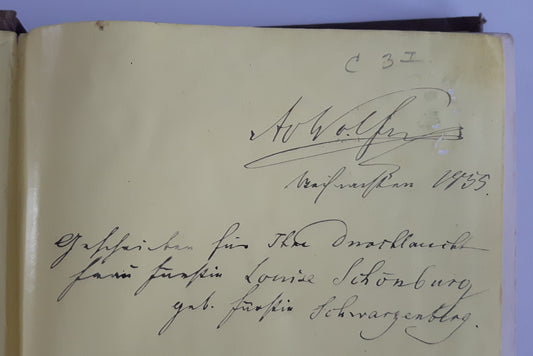 C 3 I
AvWolf
Weihnachten 1855.
Geschrieben für Ihre Durchlaucht
Frau Fürstin Louise Schönburg
geb. Fürstin Schwarzenberg.